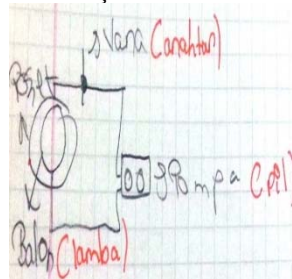 Vana (anahtar)
Pompa (pil)
Balon (lamba)